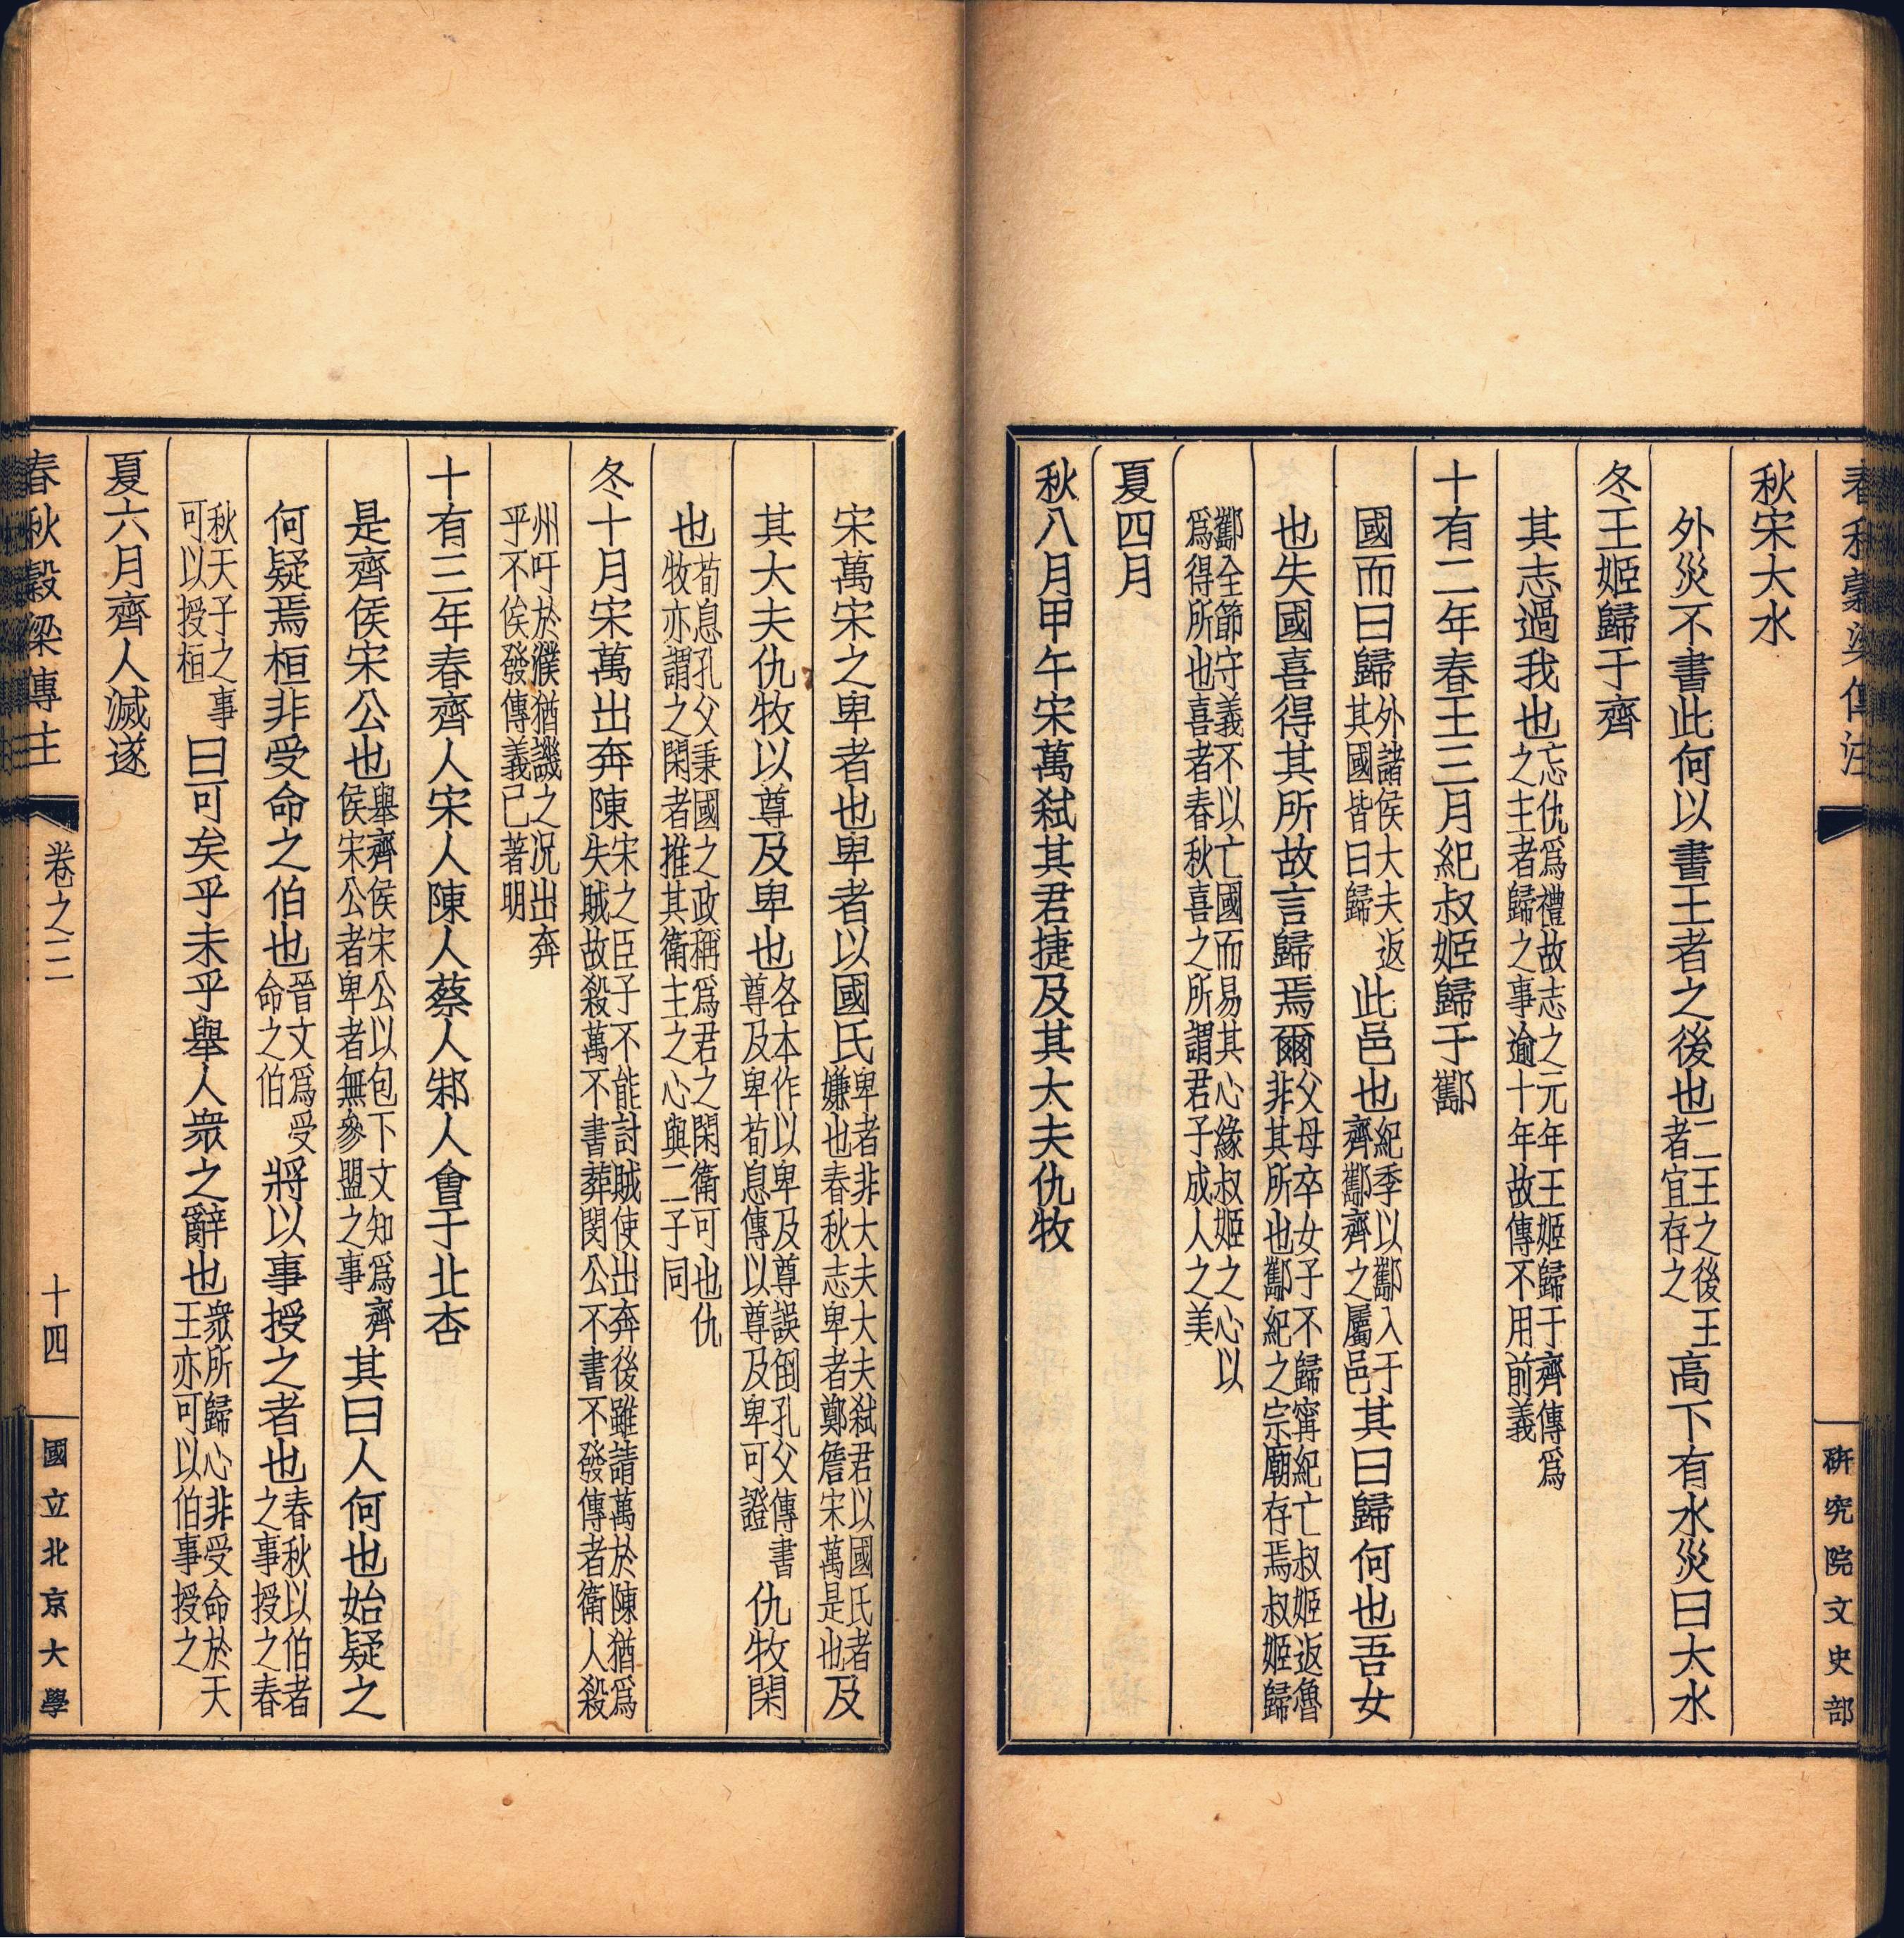 春秋穀梁傳注
研究院文史部
秋宋大水
外災不書此何以書王者之後也二王之後王者宜存之高下有水災曰大水
冬王姬歸于齊
其志過我也忘仇爲禮故志之元年王姬歸于齊傳爲之主者歸之事逾十年故傳不用前義
十有二年春王三月紀叔姬歸于酅
國而曰歸外諸侯大夫返其國皆曰歸此邑也紀季以酅入于齊酅齊之屬邑其曰歸何也吾女
也失國喜得其所故言歸焉爾父母卒女子不歸寗紀亡叔姬返魯非其所也酅紀之宗廟存焉叔姬歸
酅全節守義不以亡國而易其心緣叔姬之心以爲得所也喜者春秋喜之所謂君子成人之美
夏四月
秋八月甲午宋萬弑其君捷及其大夫仇牧
宋萬宋之卑者也卑者以國氏卑者非大夫大夫弑君以國氏者嫌也春秋志卑者鄭詹宋萬是也及
其大夫仇牧以尊及卑也各本作以卑及尊誤倒孔父傳書尊及卑荀息傳以尊及卑可證仇牧閑
也荀息孔父秉國之政稱爲君之閑衛可也仇牧亦謂之閑者推其衛主之心與二子同
冬十月宋萬出奔陳宋之臣子不能討賊使出奔後雖請萬於陳猶爲失賊故殺萬不書葬閔公不書不發傳者衛人殺
州吁於濮猶譏之況出奔乎不俟發傳義已著明
十有三年春齊人宋人陳人蔡人邾人會于北杏
是齊侯宋公也舉齊侯宋公以包下文知爲齊侯宋公者卑者無參盟之事其曰人何也始疑之
何疑焉桓非受命之伯也晉文爲受命之伯將以事授之者也春秋以伯者之事授之春
秋天子之事可以授桓曰可矣乎未乎舉人衆之辭也衆所歸心非受命於天王亦可以伯事授之
夏六月齊人滅遂
春秋穀梁傳注
卷之三
十四
國立北京大學